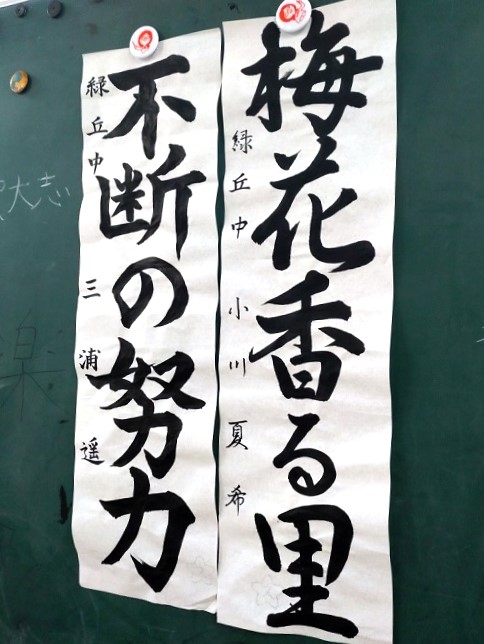 梅花香る里
緑丘中 小川夏希
不断の努力
緑丘中 三浦遥
大志